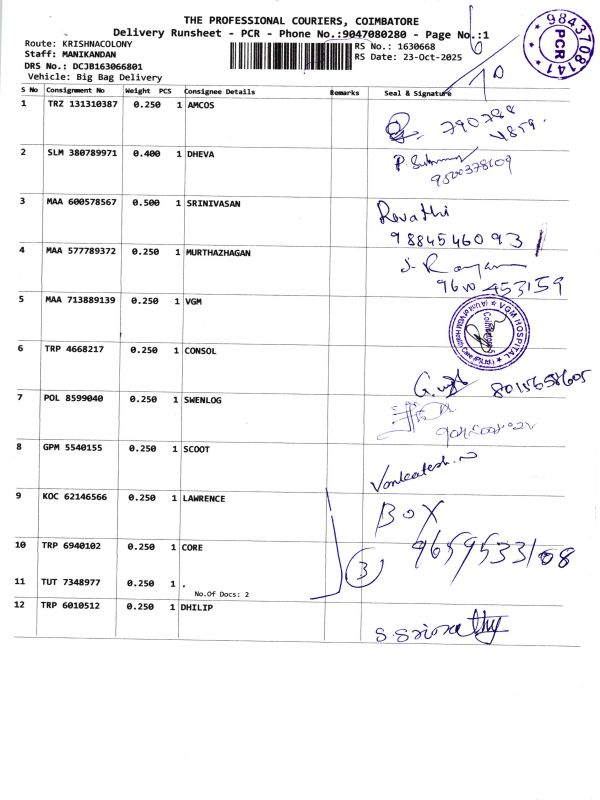 THE PROFESSIONAL COURIERS, COIMBATORE
Delivery Runsheet - PCR - Phone No.:9047080280 - Page No.:1
Route: KRISHNACOLONY
RS No.: 1630668
Staff: MANIKANDAN
RS Date: 23-Oct-2025
DRS No.: DCJB163066801
Vehicle: Big Bag Delivery
9843708141
PCR
S No Consignment No Weight PCS Consignee Details Remarks Seal & Signature
1 TRZ 131310387 0.250 1 AMCOS
2 SLM 380789971 0.400 1 DHEVA
3 MAA 600578567 0.500 1 SRINIVASAN
Revathi
9884546093
4 MAA 577789372 0.250 1 MURTHAZHAGAN
5 MAA 713889139 0.250 1 VGM
VGM HOSPITAL
6 TRP 4668217 0.250 1 CONSOL
8015658605
7 POL 8599040 0.250 1 SWENLOG
8 GPM 5540155 0.250 1 SCOOT
Vankatesh.
9 KOC 62146566 0.250 1 LAWRENCE
BOX
10 TRP 6940102 0.250 1 CORE
9659533108
3
11 TUT 7348977 0.250 1 .
No.Of Docs: 2
12 TRP 6010512 0.250 1 DHILIP